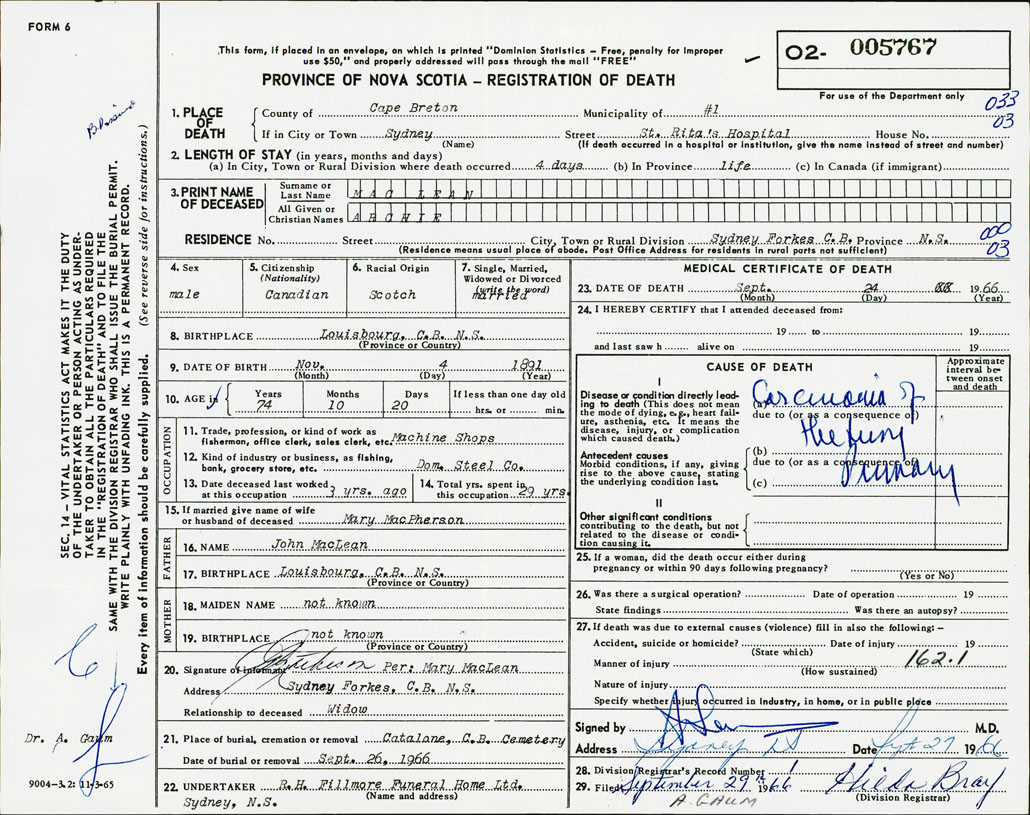 FORM 6
This form, if placed in an envelope, on which is printed "Dominion Statistics – Free, penalty for improper
use $50," and properly addressed will pass through the mail "FREE"
PROVINCE OF NOVA SCOTIA – REGISTRATION OF DEATH
02- 005767
For use of the Department only
033
03
1. PLACE OF DEATH
County of Cape Breton Municipality of #1
If in City or Town Sydney Street St. Rita's Hospital House No.
(Name) (If death occurred in a hospital or institution, give the name instead of street and number)
2. LENGTH OF STAY (in years, months and days)
(a) In City, Town or Rural Division where death occurred 4 days (b) In Province life (c) In Canada (if immigrant)
3. PRINT NAME OF DECEASED
Surname or Last Name MAC LEAN
All Given or Christian Names ARCHIE
000
03
RESIDENCE No. Street City, Town or Rural Division Sydney Forkes C.B. Province N.S.
(Residence means usual place of abode. Post Office Address for residents in rural parts not sufficient)
4. Sex
male
5. Citizenship
(Nationality)
Canadian
6. Racial Origin
Scotch
7. Single, Married,
Widowed or Divorced
(write the word)
married
8. BIRTHPLACE Louisbourg, C.B. N.S.
(Province or Country)
9. DATE OF BIRTH Nov. 4 1891
(Month) (Day) (Year)
10. AGE in
Years Months Days If less than one day old
74 10 20 hrs. or min.
OCCUPATION
11. Trade, profession, or kind of work as
fisherman, office clerk, sales clerk, etc. Machine Shops
12. Kind of industry or business, as fishing,
bank, grocery store, etc. Dom. Steel Co.
13. Date deceased last worked
at this occupation 3 yrs. ago
14. Total yrs. spent in
this occupation 29 yrs.
15. If married give name of wife
or husband of deceased Mary MacPherson
FATHER
16. NAME John MacLean
17. BIRTHPLACE Louisbourg, C.B. N.S.
(Province or Country)
MOTHER
18. MAIDEN NAME not known
19. BIRTHPLACE not known
(Province or Country)
20. Signature of informant Per: Mary MacLean
Address Sydney Forkes, C.B. N.S.
Relationship to deceased Widow
21. Place of burial, cremation or removal Catalone, C.B. Cemetery
Date of burial or removal Sept. 26, 1966
22. UNDERTAKER R.H. Fillmore Funeral Home Ltd.
(Name and address)
Sydney, N.S.
MEDICAL CERTIFICATE OF DEATH
23. DATE OF DEATH Sept. 24 1966
(Month) (Day) (Year)
24. I HEREBY CERTIFY that I attended deceased from:
19 to 19
and last saw h alive on 19
CAUSE OF DEATH
Approximate interval between onset and death
I
Disease or condition directly leading
to death (This does not mean
the mode of dying, e.g., heart failure,
asthenia, etc. It means the
disease, injury, or complication
which caused death.)
(a) Carcinoma of
due to (or as a consequence of)
the lung
Antecedent causes
Morbid conditions, if any, giving
rise to the above cause, stating
the underlying condition last.
(b)
due to (or as a consequence of)
primary
(c)
II
Other significant conditions
contributing to the death, but not
related to the disease or condition
causing it.
25. If a woman, did the death occur either during
pregnancy or within 90 days following pregnancy?
(Yes or No)
26. Was there a surgical operation? Date of operation 19
State findings Was there an autopsy?
27. If death was due to external causes (violence) fill in also the following: –
Accident, suicide or homicide? Date of injury 19
(State which)
Manner of injury 162.1
(How sustained)
Nature of injury
Specify whether injury occurred in industry, in home, or in public place
Signed by M.D.
Address Sydney NS Date Sept 27 1966
28. Division Registrar's Record Number
29. Filed September 29th 1966 Hilda Bray
(Division Registrar)
A. GAUM
SEC. 14 – VITAL STATISTICS ACT MAKES IT THE DUTY
OF THE UNDERTAKER OR PERSON ACTING AS UNDERTAKER
TO OBTAIN ALL THE PARTICULARS REQUIRED
IN THE "REGISTRATION OF DEATH" AND TO FILE THE
SAME WITH THE DIVISION REGISTRAR WHO SHALL ISSUE THE BURIAL PERMIT.
WRITE PLAINLY WITH UNFADING INK. THIS IS A PERMANENT RECORD.
Every item of information should be carefully supplied. (See reverse side for instructions.)
Dr. A. Gaum
9004-3.2: 11-3-65